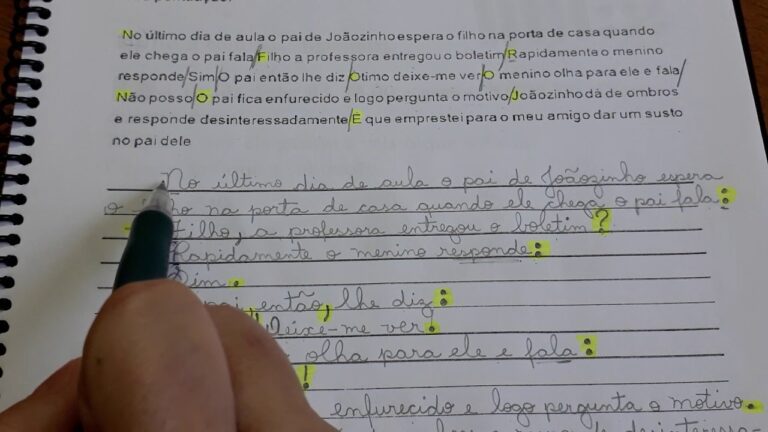 No último dia de aula o pai de Joãozinho espera o filho na porta de casa quando
ele chega o pai fala/Filho a professora entregou o boletim/Rapidamente o menino
responde/Sim/O pai então lhe diz/Otimo deixe-me ver/O menino olha para ele e fala/
Não posso/O pai fica enfurecido e logo pergunta o motivo/Joãozinho dá de ombros
e responde desinteressadamente/E que emprestei para o meu amigo dar um susto
no pai dele
No último dia de aula o pai de Joãozinho espera
o na porta de casa quando ele chega o pai fala:
Filho, a professora entregou o boletim?
Rapidamente o menino responde:
Sim.
pai então, lhe diz:
Deixe-me ver!
olha para ele e fala:
!
enfurecido e logo pergunta o motivo.